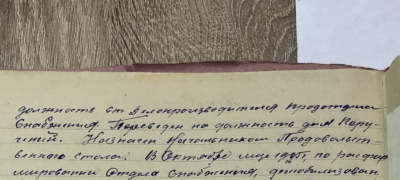 должность ст. Делопроизводителя продотдела
Снабжения. Переведен на должность для Пору-
чений. Назначен Начальником Продовольст-
венного стола. В Октябре м-це 1921 г., по расфор-
мировании Отдела Снабжения, демобилизован